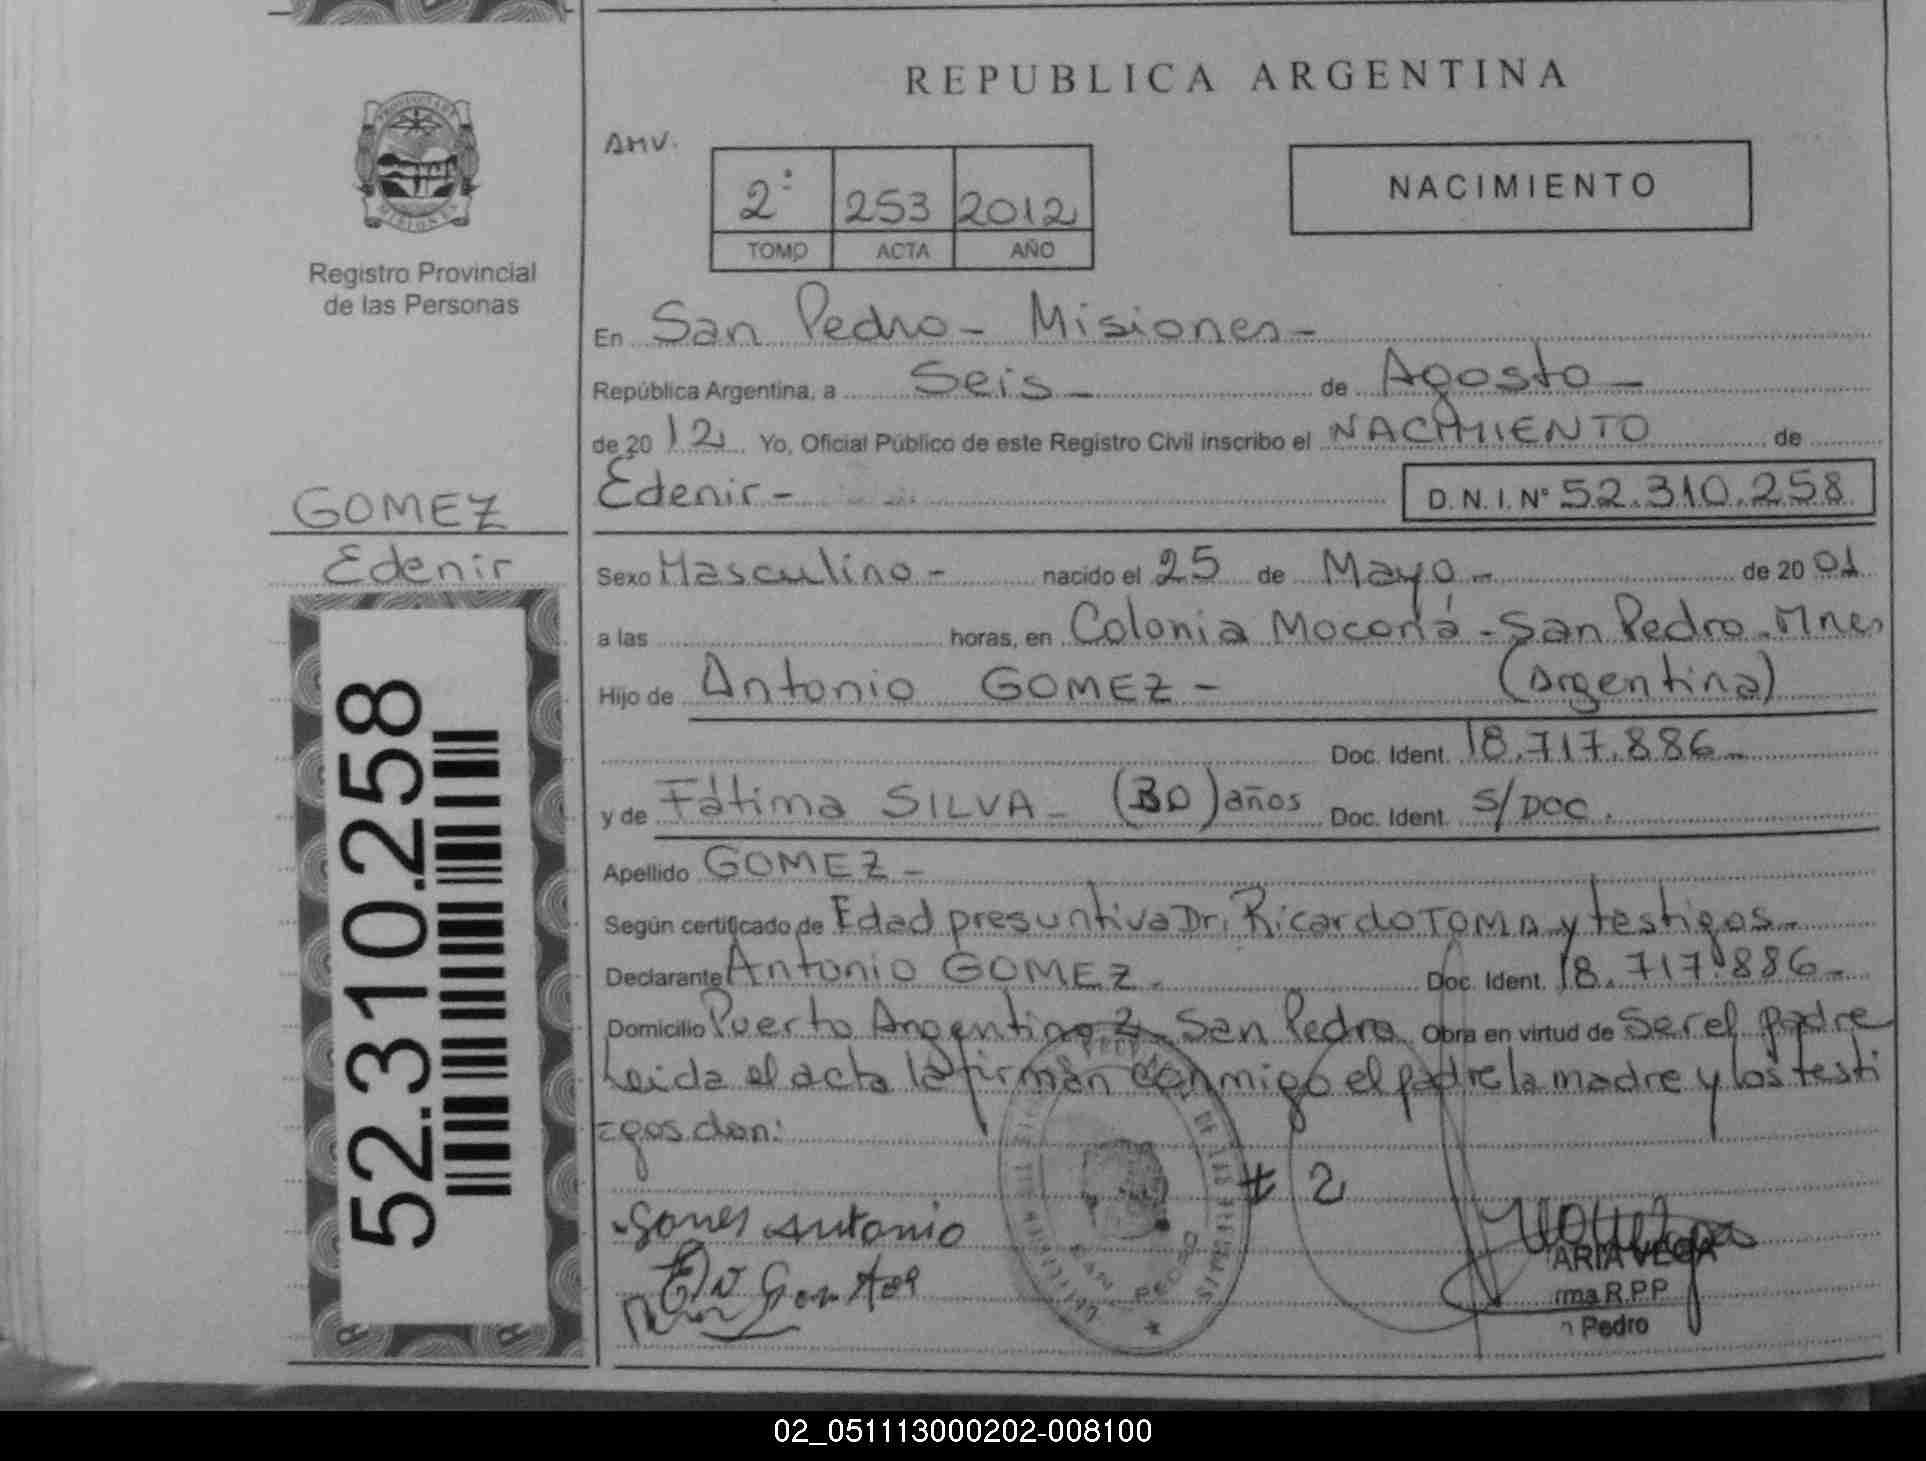 REPUBLICA ARGENTINA
AMV.
2º 253 2012
TOMO ACTA AÑO
NACIMIENTO
Registro Provincial
de las Personas
En San Pedro - Misiones -
República Argentina, a Seis - de Agosto -
de 2012 Yo, Oficial Público de este Registro Civil inscribo el NACIMIENTO de
Edenir - D.N.I. Nº 52.310.258
GOMEZ
Edenir
Sexo Masculino - nacido el 25 de Mayo - de 2001
a las horas, en Colonia Moconá - San Pedro. Mnes
Hijo de Antonio GOMEZ - (Argentina)
Doc. Ident. 18.717.886 -
y de Fátima SILVA - (30) años Doc. Ident. S/DOC.
Apellido GOMEZ -
Según certificado de Edad presuntiva Dr. Ricardo TOMA y testigos -
Declarante Antonio GOMEZ - Doc. Ident. 18.717.886 -
Domicilio Puerto Argentino 2 San Pedro Obra en virtud de Ser el padre
Leida el acta la firman conmigo el padre la madre y los testi
=gos don:
52.310.258
# 2
Gomes Antonio
SAN PEDRO
ARIA VEGA
rma R.P.P
n Pedro
02_051113000202-008100